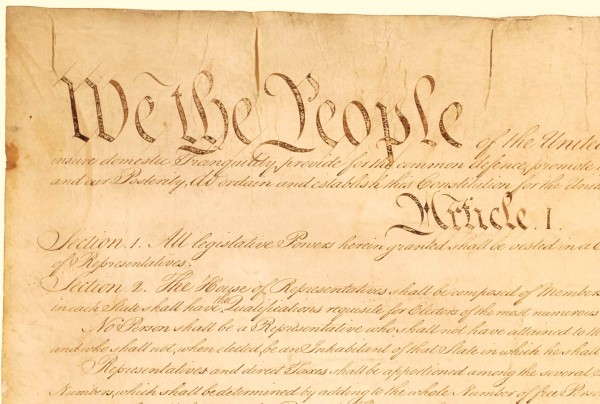 We the People of the United
insure domestic Tranquility, provide for the common defence, promote
and our Posterity, do ordain and establish this Constitution for the Unit
Article. I.
Section. 1. All legislative Powers herein granted shall be vested in a C
of Representatives.
Section. 2. The House of Representatives shall be composed of Members
in each State shall have the Qualifications requisite for Electors of the most numerous
No Person shall be a Representative who shall not have attained to th
and who shall not, when elected, be an Inhabitant of that State in which he shall
Representatives and direct Taxes shall be apportioned among the several
Numbers, which shall be determined by adding to the whole Number of free Pers